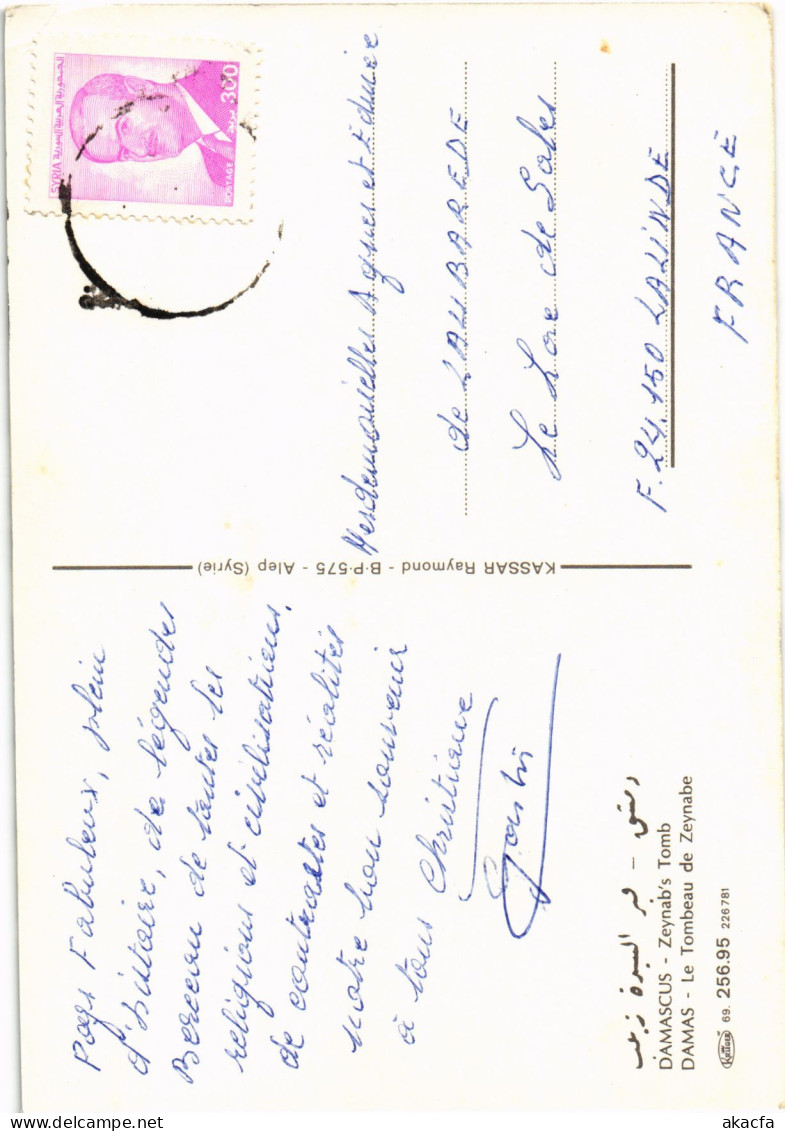 Pays Fabuleux, plein
d'histoire, de légendes
Berceau de toutes les
religions et civilisations,
de contrastes et réalités
notre bon souvenir
à tous Christiane
دمشق - قبر السيدة زينب
DAMASCUS - Zeynab's Tomb
DAMAS - Le Tombeau de Zeynabe
KRÜGER 69. 256.95 226781
KASSAR Raymond - B·P·575 - Alep (Syrie)
SYRIA الجمهورية العربية السورية
300
POSTAGE بريد
Mesdemoiselles Agnes et Edmée
de LAUBAREDE
Le Loc de Sales
F. 24.150 LALINDE
FRANCE
akacfa